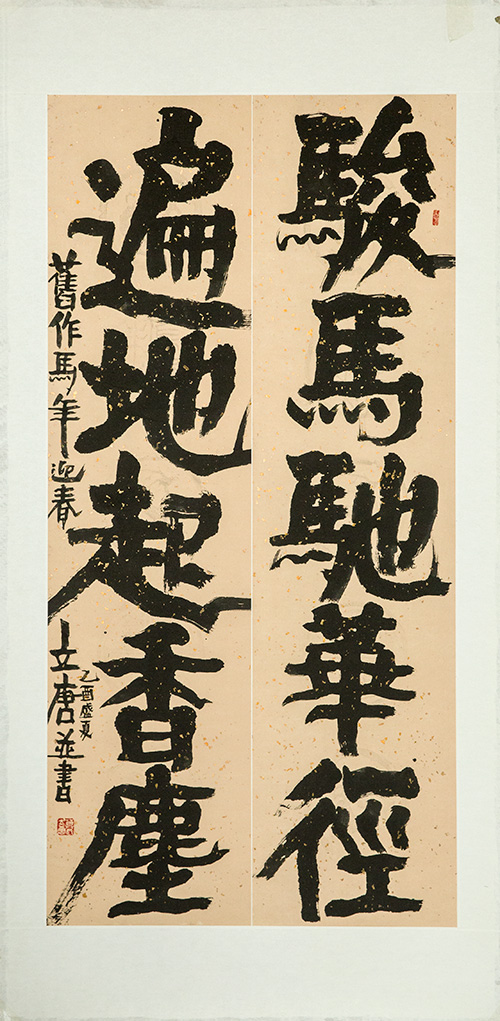 駿馬馳華徑
遍地起香塵
舊作馬年迎春
乙酉盛夏
立唐並書